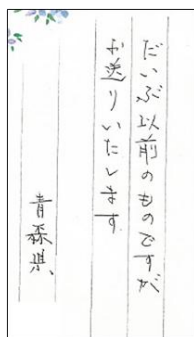 だいぶ以前のものですが
お送りいたします
青森県、